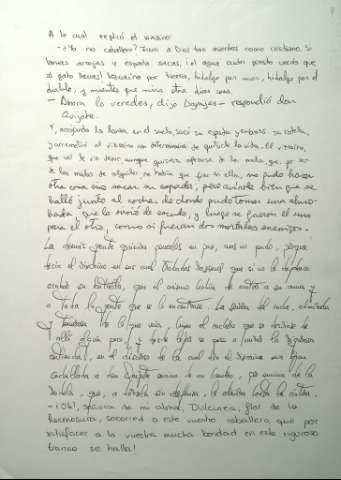 A lo cual replicó el vizcaíno:
- ¿Yo no caballero? Juro a Dios tan mientes como cristiano. Si
lanza arrojas y espada sacas, ¡el agua cuán presto verás que
al gato llevas! Vizcaíno por tierra, hidalgo por mar, hidalgo por el
diablo, y mientes que mira otra dices cosa.
- Ahora lo veredes, dijo Agrajes - respondió don
Quijote.
Y, arrojando la lanza en el suelo, sacó su espada y embrazó su rodela,
y arremetió al vizcaíno con determinación de quitarle la vida. El vizcaíno,
que así le vio venir, aunque quisiera apearse de la mula, que, por ser
de las malas de alquiler, no había que fiar en ella, no pudo hacer
otra cosa sino sacar su espada; pero avínole bien que se
halló junto al coche, de donde pudo tomar una almo-
hada, que le sirvió de escudo, y luego se fueron el uno
para el otro, como si fueran dos mortales enemigos.
La demás gente quisiera ponerlos en paz, mas no pudo, porque
decía el vizcaíno en sus mal trabadas razones que si no le dejaban
acabar su batalla, que él mismo había de matar a su ama y
a toda la gente que se lo estorbase. La señora del coche, admirada
y temerosa de lo que veía, hizo al cochero que se desviase de
allí algún poco, y desde lejos se puso a mirar la rigurosa
contienda, en el discurso de la cual dio el vizcaíno una gran
cuchillada a don Quijote encima de un hombro, por encima de la
rodela, que, a dársela sin defensa, le abriera hasta la cintura.
- ¡Oh!, señora de mi alma, Dulcinea, flor de la
hermosura, socorred a este vuestro caballero, que por
satisfacer a la vuestra mucha bondad en este riguroso
trance se halla!